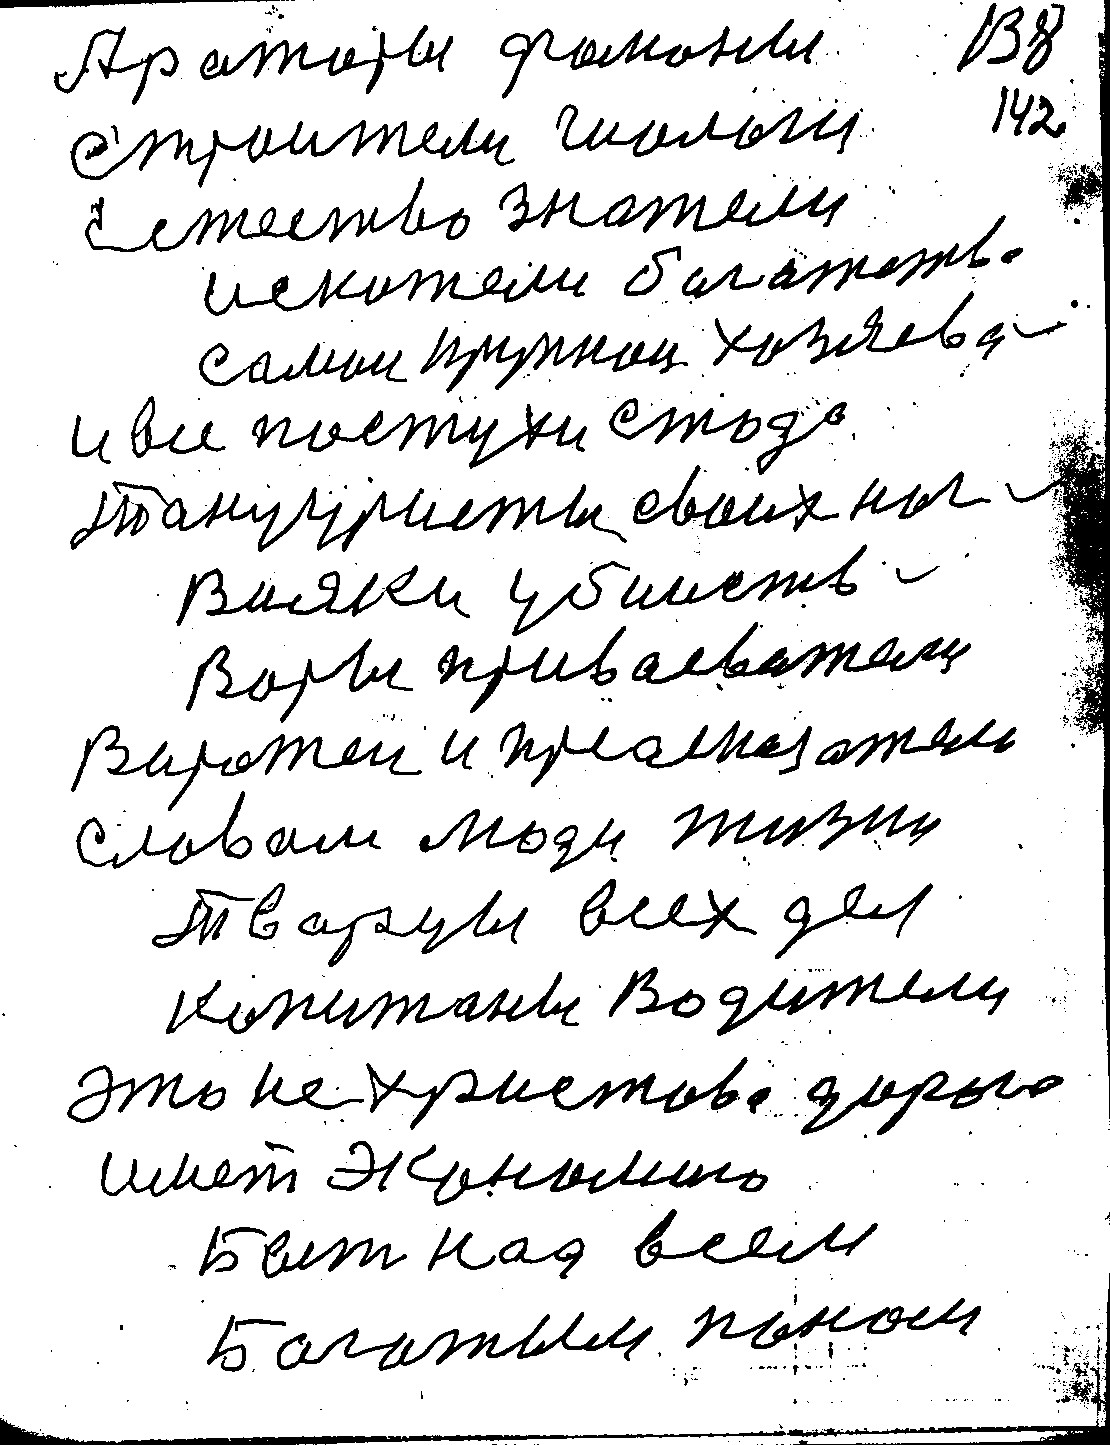 Араторы фомоны
В8
142
Строители гиологи
Естество знатели
искотели богатств.
самои крупнои хозяева
и вси постухи стада
Танцуристы своих ног
Вияки убииств
Воры присваеватели
Виротеи и предсказатели
Словом люди жизни
Тварцы всех дел
Копитаны Водители
Это не Христова дорога
имет Экономию
Быт над всем
Богатым паном